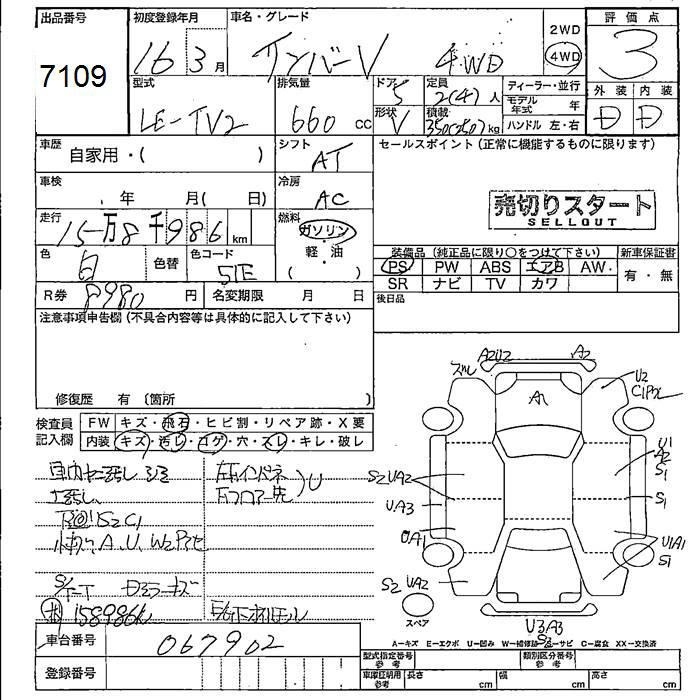 出品番号 初度登録年月 車名・グレード 2WD 4WD 評価点
7109 16年3月 4WD 3
型式 LE-TV2 排気量 660 cc ドア 5 定員 2(4)人 ディーラー・並行 外装 内装
形状 V 積載 350(250)kg モデル年式 年 D D
ハンドル 左・右
車歴 自家用・( ) シフト AT セールスポイント(正常に機能するものに限ります)
車検 年 月( 日) 冷房 AC
売切りスタート
SELLOUT
走行 15万8千986 km 燃料 ガソリン・軽・油 ( )
色 白 色替 色コード 51E
装備品(純正品に限り○をつけて下さい) 新車保証書
PS PW ABS エアB AW 有・無
SR ナビ TV カワ
R券 8980円 名変期限 月 日 後日品
注意事項申告欄(不具合内容等は具体的に記入して下さい)
修復歴 有(箇所 )
検査員記入欄 FW キズ・飛石・ヒビ割・リペア跡・X要
内装 キズ・汚レ・コゲ・穴・スレ・キレ・破レ
A2U2 A2
スレ A1 U2
C1P2
S2UA2 U1
A2
S1
UA3 S1
UA1 U1A1
S1
S2 UA2
スペア
U3A3
S2
A-キズ E-エクボ U-凹み S-サビ C-腐食 XX-交換済
158986K
車台番号 067902
登録番号
型式指定番号 参考 類別区分番号 参考
車庫証明用 参考 長さ cm 幅 cm 高さ cm